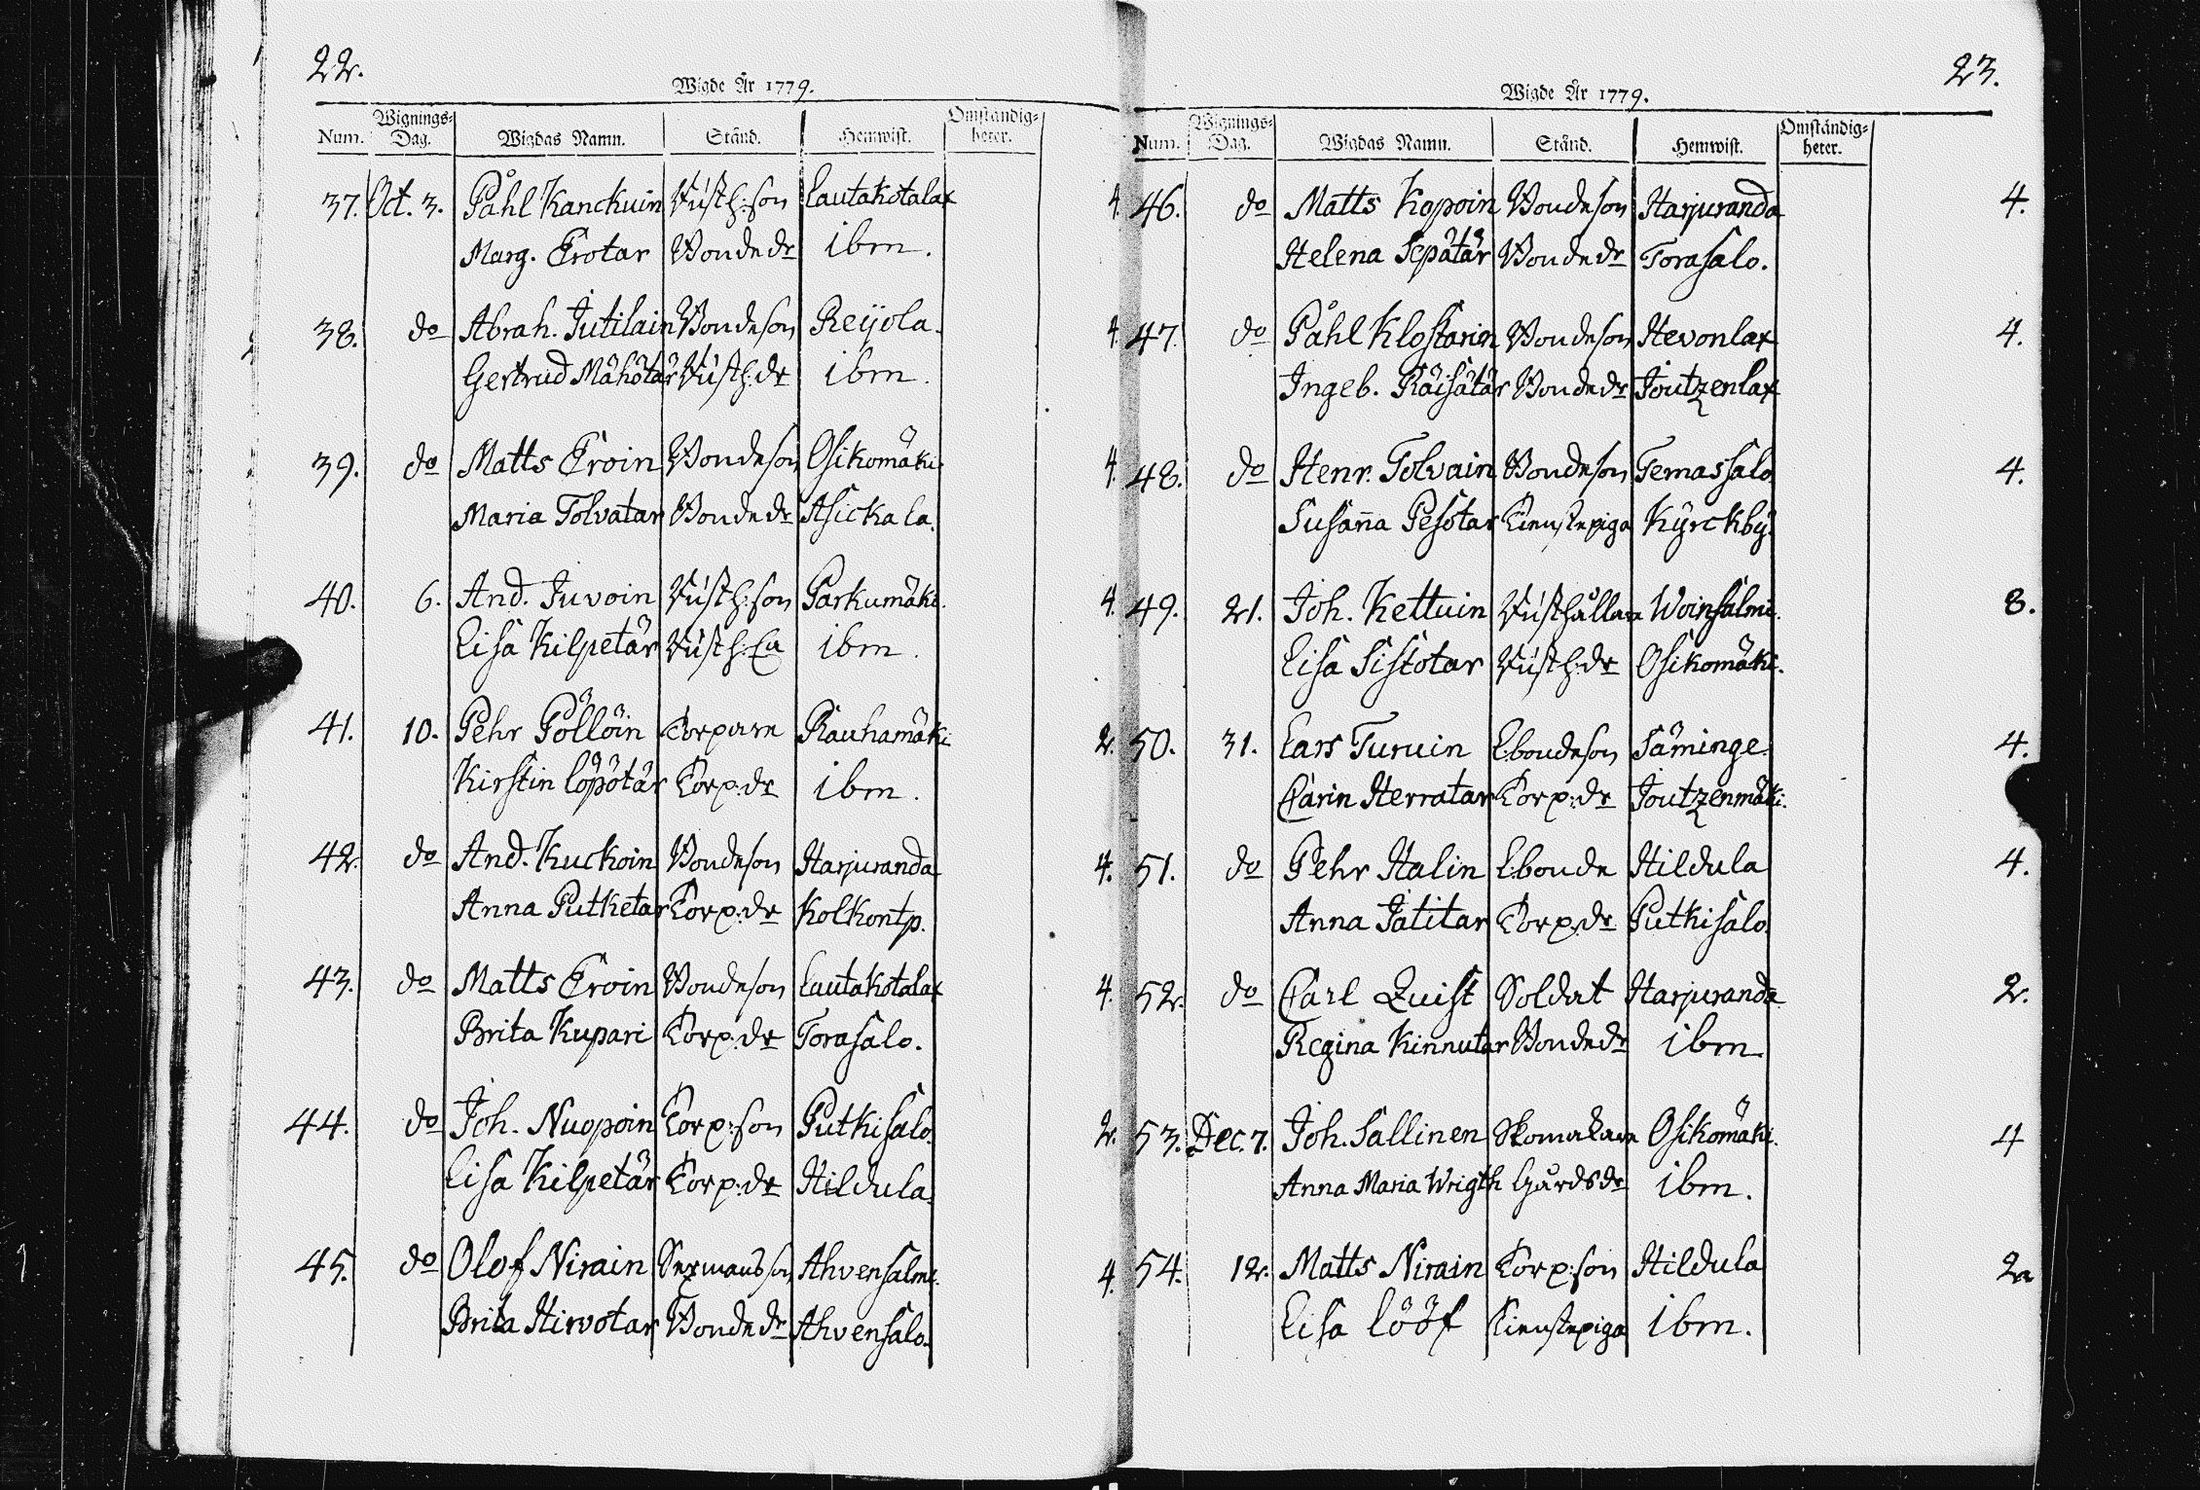 22.
Wigde År 1779.
Num. Wignings-Dag. Wigdas Namn. Stånd. Hemwist. Omständig-heter.
37. Oct. 3. Påhl Kanckuin Rusth:son Lautakotalax 4.
Marg. Erotar Bonde dr ibm.
38. do Abrah. Jutilain Bondeson Reijola. 4.
Gertrud Mähötär Rusth:dr ibm.
39. do Matts Eroin Bondeson Osikomäki 4.
Maria Tolvatar Bonde dr Asickala.
40. 6. And. Juvoin Rusth:son Parkumäki. 4.
Lisa Kilpetär Rusth: ibm.
41. 10. Pehr Pöllöin Torpare Rauhamäki 2.
Kirstin Löpötär Torp:dr ibm.
42. do And. Kuckoin Bondeson Harjuranda 4.
Anna Putketar Torp:dr Kolkontp.
43. do Matts Eroin Bondeson Lautakotalax 4.
Brita Kupari Torp:dr Torasalo.
44. do Joh. Nuopoin Torp:son Putkisalo. 2.
Lisa Kilpetär Torp:dr Hildula.
45. do Olof Nirain Ahvensalmi. 4.
Brita Hirvotar Bonde dr Ahvensalo.
23.
Wigde År 1779.
Num. Wignings-Dag. Wigdas Namn. Stånd. Hemwist. Omständig-heter.
46. do Matts Kopoin Bondeson Harjuranda 4.
Helena Sepätär Bonde dr Torasalo.
47. do Påhl Klostarin Bondeson Hevonlax 4.
Ingeb. Räisätär Bonde dr Joutzenlax
48. do Henr. Tolvain Bondeson Temassalo 4.
Susan̄a Pesotar Tienstepiga Kyrckby.
49. 21. Joh. Kettuin Rusthållare Woinsalmi. 8.
Lisa Sistotar Rusth:dr Osikomäki.
50. 31. Lars Turuin Lbondeson Säminge 4.
Carin Herratar Torp:dr Joutzenmäki.
51. do Pehr Halin Lbonde Hildula 4.
Anna Jatitar Torp:dr Putkisalo.
52. do Carl Quist Soldat Harjuranda 2.
Regina Kinnutar Bonde dr ibm
53. Dec. 7. Joh. Sallinen Skomakare Osikomäki. 4
Anna Maria Wrigth Gårds dr ibm.
54. 12. Matts Nirain Torp:son Hildula 2
Lisa Lööf Tienstepiga ibm.